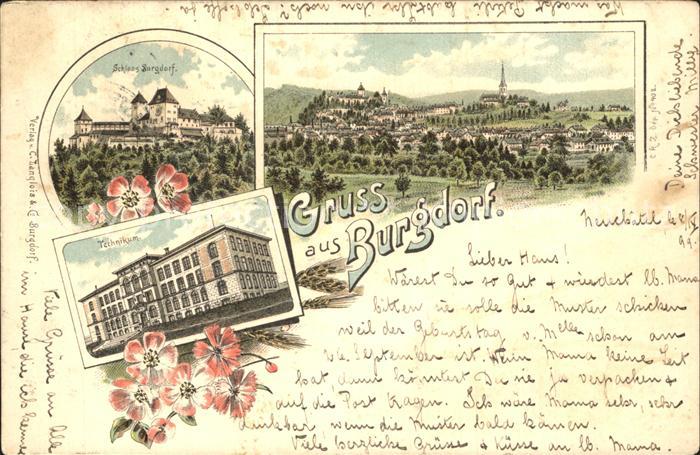 Schloss Burgdorf.
Technikum.
Gruss
aus Burgdorf.
Verlag v. C. Langlois & Cie Burgdorf.
Neuchâtel, le
99.
Lieber Hans!
Wärest Du so gut & wiedert lb. Mama
bitten sie solle die Muster schicken
weil der Geburtstag v. Melle schon am
26. September ist. Wenn Mama keine Zeit
hat, dann könntest Du sie ja verpacken &
auf die Post tragen. Ich wäre Mama sehr, sehr
dankbar, wenn die Muster bald kämen.
Viele herzliche Grüsse & Küsse an lb. Mama.
Viele Grüsse an alle
im Hause die ich kenne
Deine Dichliebende
Schwester
Was macht